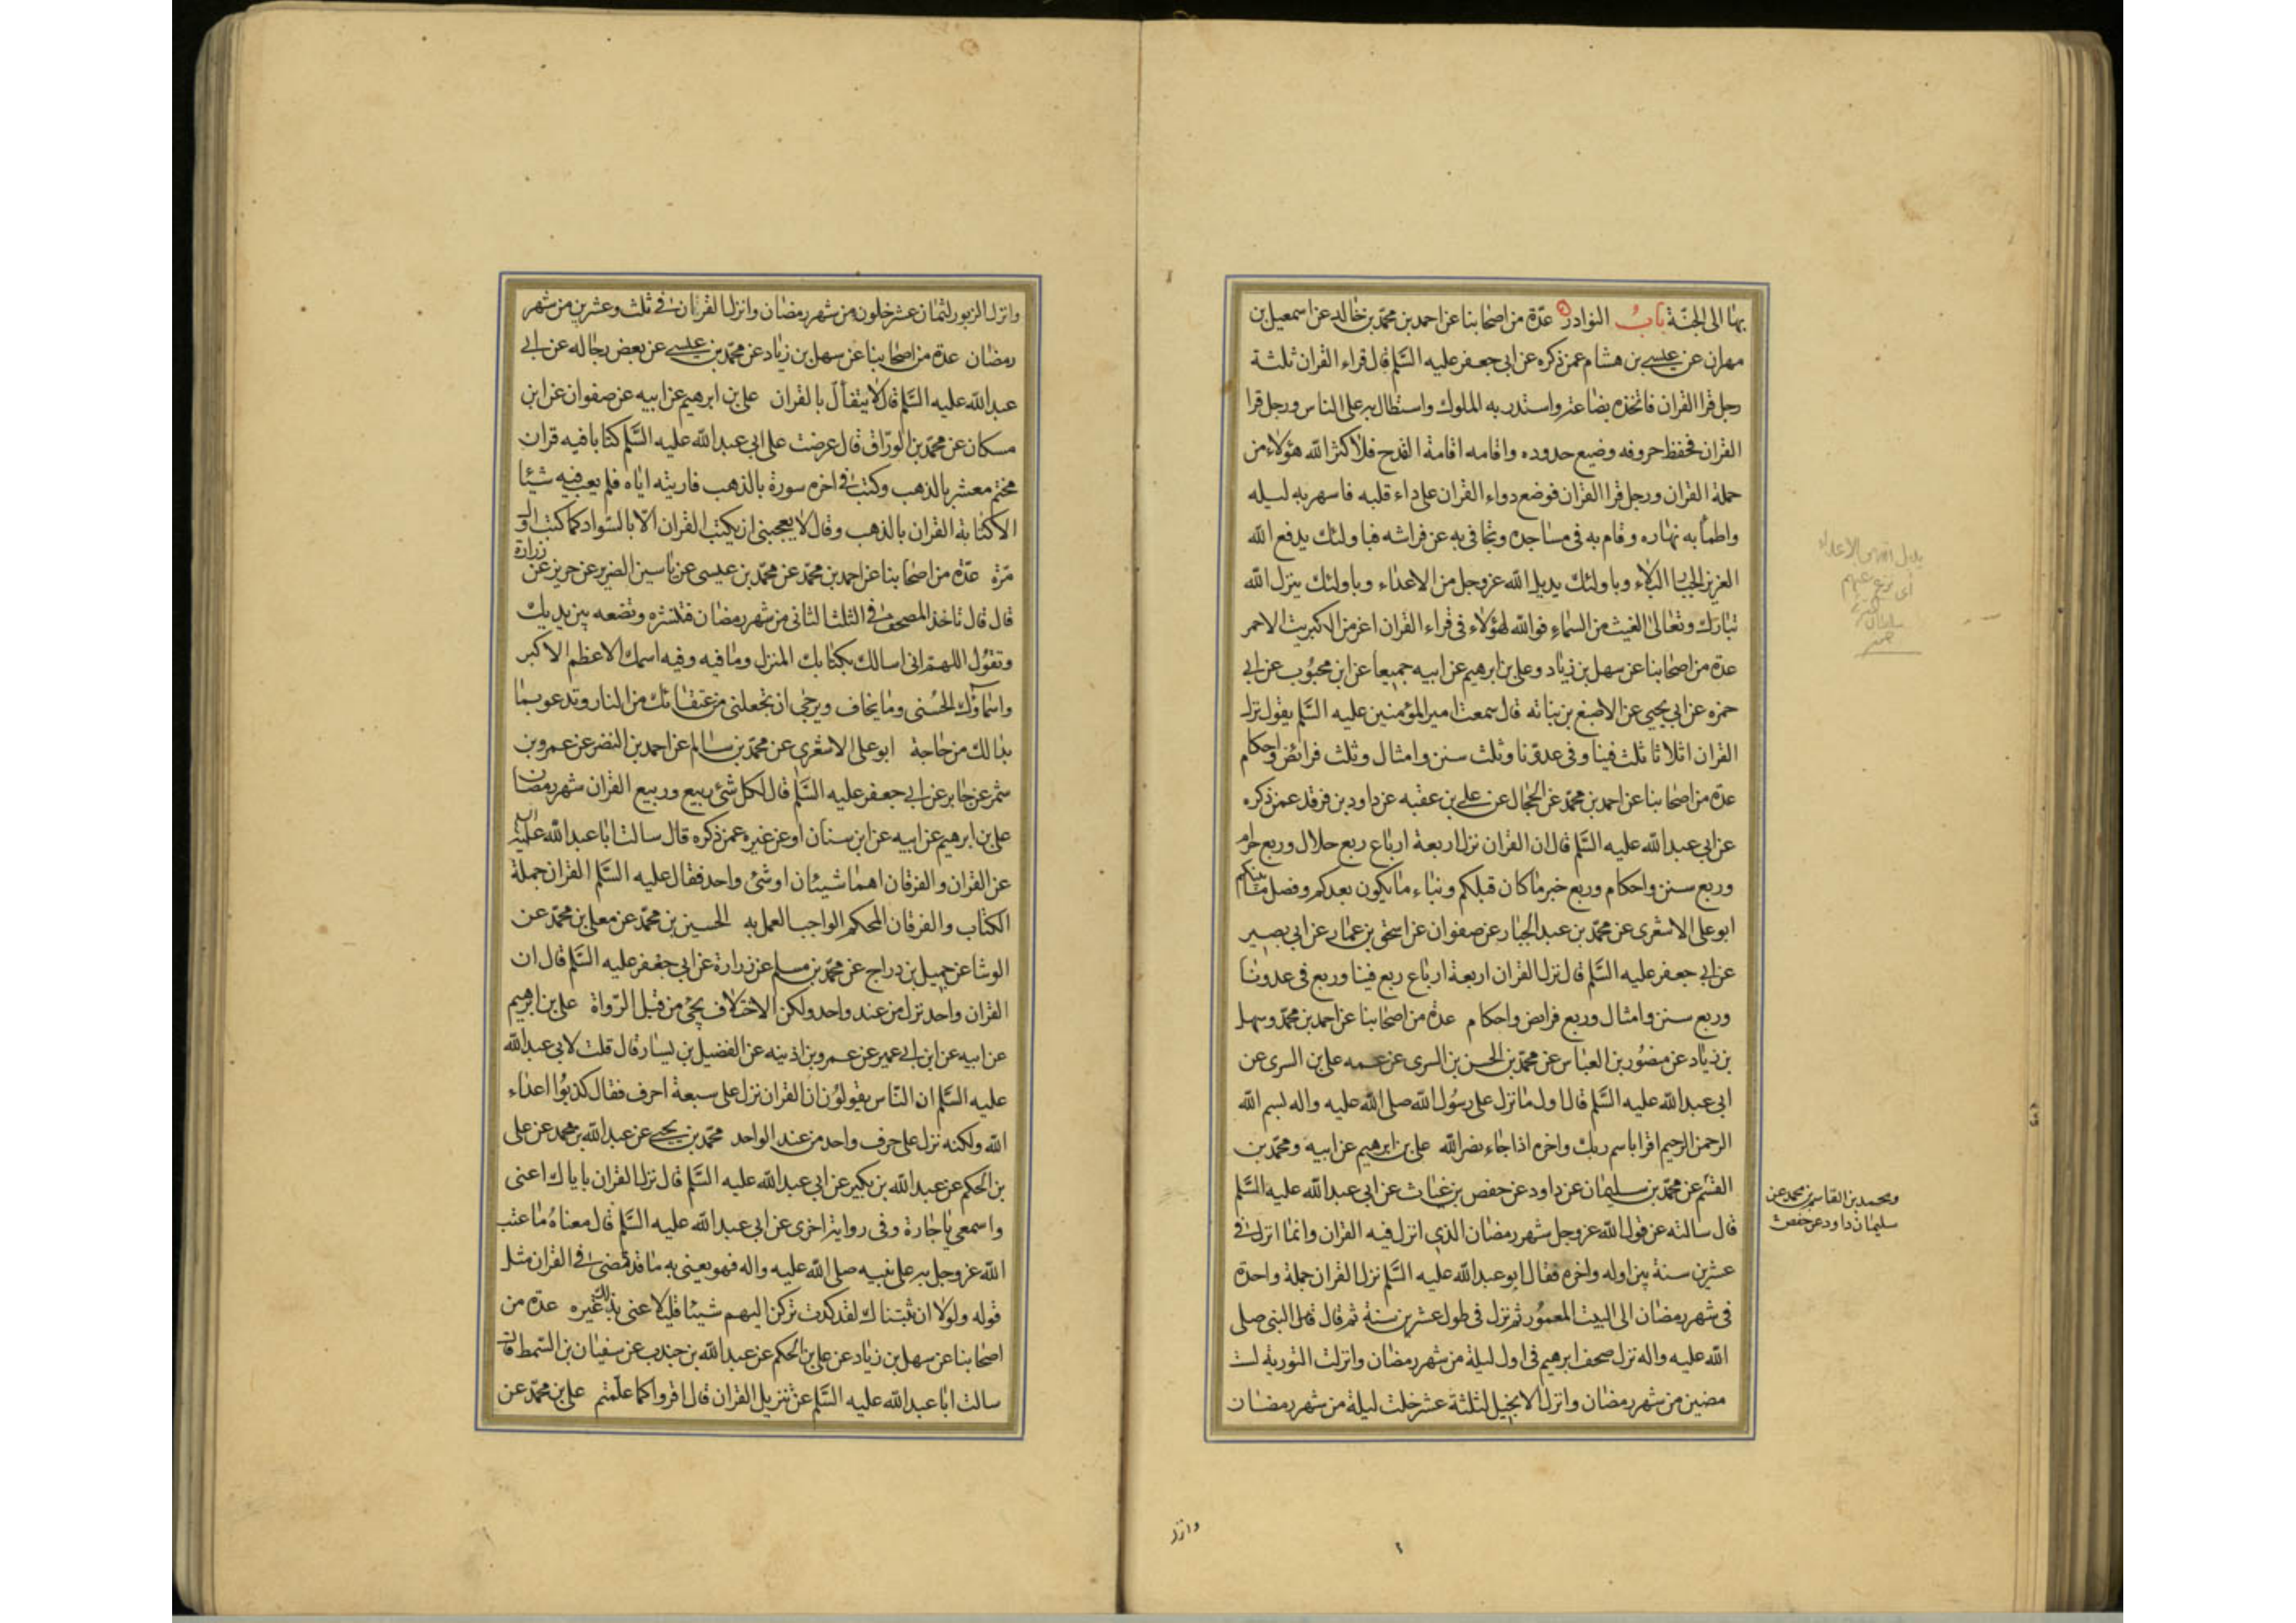 بها الى الجنة باب النوادر عدة من اصحابنا عن احمد بن محمد بن خالد عن اسمعيل بن
مهران عن عيسى بن هشام عمن ذكره عن ابى جعفر عليه السلم قال قراء القران ثلثة
رجل قرا القران فاتخذه بضاعة واستدر به الملوك واستطال به على الناس ورجل قرا
القران فحفظ حروفه وضيع حدوده واقامه اقامة القدح فلا كثر الله هؤلاء من
حملة القران ورجل قرا القران فوضع دواء القران على داء قلبه فاسهر به ليله
واظمأ به نهاره وقام به فى مساجده وتجافى به عن فراشه فباولئك يدفع الله
العزيز الجبار البلاء وباولئك يديل الله عز وجل من الاعداء وباولئك ينزل الله
تبارك وتعالى الغيث من السماء فوالله لهؤلاء فى قراء القران اعز من الكبريت الاحمر
عدة من اصحابنا عن سهل بن زياد وعلى بن ابرهيم عن ابيه جميعا عن ابن محبوب عن ابى
حمزه عن ابى يحيى عن الاصبغ بن نباته قال سمعت امير المؤمنين عليه السلم يقول نزل
القران اثلاثا ثلث فينا وفى عدونا وثلث سنن وامثال وثلث فرائض واحكام
عدة من اصحابنا عن احمد بن محمد عن الحجال عن على بن عقبه عن داود بن فرقد عمن ذكره
عن ابى عبد الله عليه السلم قال ان القران نزل اربعة ارباع ربع حلال وربع حرام
وربع سنن واحكام وربع خبر ما كان قبلكم ونباء ما يكون بعدكم وفصل ما بينكم
ابو على الاشعرى عن محمد بن عبد الجبار عن صفوان عن اسحق بن عمار عن ابى بصير
عن ابى جعفر عليه السلم قال نزل القران اربعة ارباع ربع فينا وربع فى عدونا
وربع سنن وامثال وربع فرايض واحكام عدة من اصحابنا عن احمد بن محمد وسهل
بن زياد عن منصور بن العباس عن محمد بن الحسن بن السرى عن عمه على بن السرى عن
ابى عبد الله عليه السلم قال اول ما نزل على رسول الله صلى الله عليه واله بسم الله
الرحمن الرحيم اقرا باسم ربك واخره اذا جاء نصر الله على بن ابرهيم عن ابيه ومحمد بن
القسم عن محمد بن سليمان عن داود عن حفص بن غياث عن ابى عبد الله عليه السلم
قال سالته عن قول الله عز وجل شهر رمضان الذى انزل فيه القران وانما انزل فى
عشرين سنة بين اوله واخره فقال ابو عبد الله عليه السلم نزل القران جملة واحدة
فى شهر رمضان الى البيت المعمور ثم نزل فى طول عشرين سنة ثم قال قال النبى صلى
الله عليه واله نزل صحف ابرهيم فى اول ليلة من شهر رمضان وانزلت التورية لست
مضين من شهر رمضان وانزل الانجيل لثلثة عشر خلت ليلة من شهر رمضان
ومحمد بن القاسم عن محمد بن
سليمان داود عن حفص
وانزل
وانزل الزبور لثمان عشر خلون من شهر رمضان وانزل القران فى ثلث وعشرين من شهر
رمضان عدة من اصحابنا عن سهل بن زياد عن محمد بن عيسى عن بعض رجاله عن ابى
عبد الله عليه السلم قال لا يتفأل بالقران على بن ابرهيم عن ابيه عن صفوان عن ابن
مسكان عن محمد بن الوراق قال عرضت على ابى عبد الله عليه السلم كتابا فيه قران
مختم معشر بالذهب وكتب فى اخره سورة بالذهب فاريته اياه فلم يعب فيه شيئا
الا كتابة القران بالذهب وقال لا يعجبنى ان يكتب القران الا بالسواد كما كتب اول
مرة عدة من اصحابنا عن احمد بن محمد عن محمد بن عيسى عن ياسين الضرير عن حريز عن زرارة
قال قال تاخذ المصحف فى الثلث الثانى من شهر رمضان فتنشره وتضعه بين يديك
وتقول اللهم انى اسالك بكتابك المنزل وما فيه وفيه اسمك الاعظم الاكبر
واسماؤك الحسنى وما يخاف ويرجى ان تجعلنى من عتقائك من النار وتدعو بما
بدا لك من حاجة ابو على الاشعرى عن محمد بن سالم عن احمد بن النضر عن عمرو بن
شمر عن جابر عن ابى جعفر عليه السلم قال لكل شئ ربيع وربيع القران شهر رمضان
على بن ابرهيم عن ابيه عن ابن سنان او عن غيره عمن ذكره قال سالت ابا عبد الله عليه السلم
عن القران والفرقان اهما شيئان او شئ واحد فقال عليه السلم القران جملة
الكتاب والفرقان المحكم الواجب العمل به الحسين بن محمد عن معلى بن محمد عن
الوشا عن جميل بن دراج عن محمد بن مسلم عن زرارة عن ابى جعفر عليه السلم قال ان
القران واحد نزل من عند واحد ولكن الاختلاف يجئ من قبل الرواة على بن ابرهيم
عن ابيه عن ابن ابى عمير عن عمر وبن اذينه عن الفضيل بن يسار قال قلت لابى عبد الله
عليه السلم ان الناس يقولون ان القران نزل على سبعة احرف فقال كذبوا اعداء
الله ولكنه نزل على حرف واحد من عند الواحد محمد بن يحيى عن عبد الله بن محمد عن على
بن الحكم عن عبد الله بن بكير عن ابى عبد الله عليه السلم قال نزل القران باياك اعنى
واسمعى يا جارة وفى رواية اخرى عن ابى عبد الله عليه السلم قال معناه ما عتب
الله عز وجل به على نبيه صلى الله عليه واله فهو يعنى به ما قد قضى فى القران مثل
قوله ولولا ان ثبتناك لقد كدت تركن اليهم شيئا قليلا عنى بذلك غيره عدة من
اصحابنا عن سهل بن زياد عن على بن الحكم عن عبد الله بن جندب عن سفيان بن السمط قال
سالت ابا عبد الله عليه السلم عن تنزيل القران قال اقروا كما علمتم على بن محمد عن